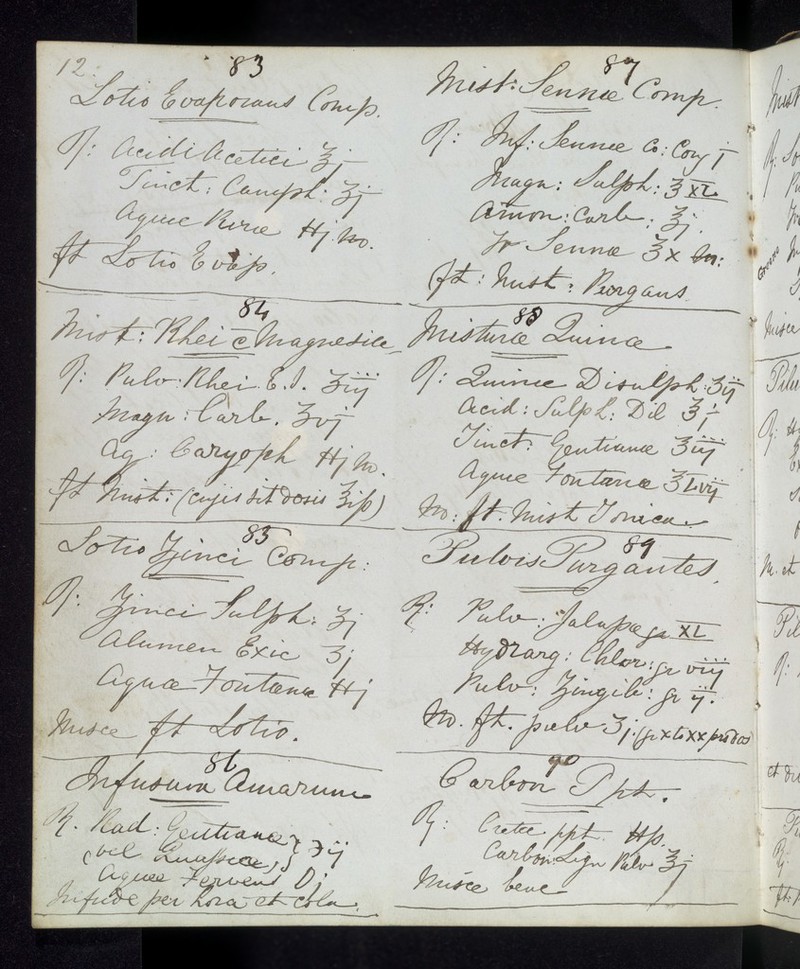 12.
83
Lotio Evaporans Comp.
℞: Acidi Acetici ℥j
Tinct: Camph: ℥j
Aquæ Puræ ℔j m.
ft Lotio Evap.
84
Mist: Rhei c̄ Magnesiæ
℞: Pulv: Rhei E.I. ʒiij
Magn: Carb. ʒvj
Aq: Caryoph ℔j m.
ft Mist: (cujis sit dosis ℥iſs)
85
Lotio Zinci Comp:
℞: Zinci Sulph: ʒj
Alumen Exic ʒj
Aquæ Fontanæ ℔j
Misce ft Lotio.
86
Infusum Amarum
℞. Rad: Gentianæ
(vel Quassiæ,) ʒij
Aquæ Fervent Oj
Infude per hora et cola.
87
Mist: Sennæ Comp.
℞: Inf: Sennæ Co: Cong j
Magn: Sulph: ℥XL
Amon: Carb: ℥j.
Tr Sennæ ℥x m:
ft: Mist: Purgans
88
Misturæ Quinæ
℞: Quinæ Disulph: ʒij
Acid: Sulph: Dil ℥j
Tinct: Gentianæ ℥iij
Aquæ Fontanæ ℥Lvij
m: ft. Mist Tonica
89
Pulvis Purgantes.
℞: Pulv: Jalapæ gr XL
Hydrarg: Chlor: gr viij
Pulv: Zingib: gr ij.
m. ft. pulv ʒj. (gr x to xx pro dos)
90
Carbon Ppt.
℞: Cretæ ppt. ℔ſs.
Carbon Lign Pulv ℥j
Misce bene